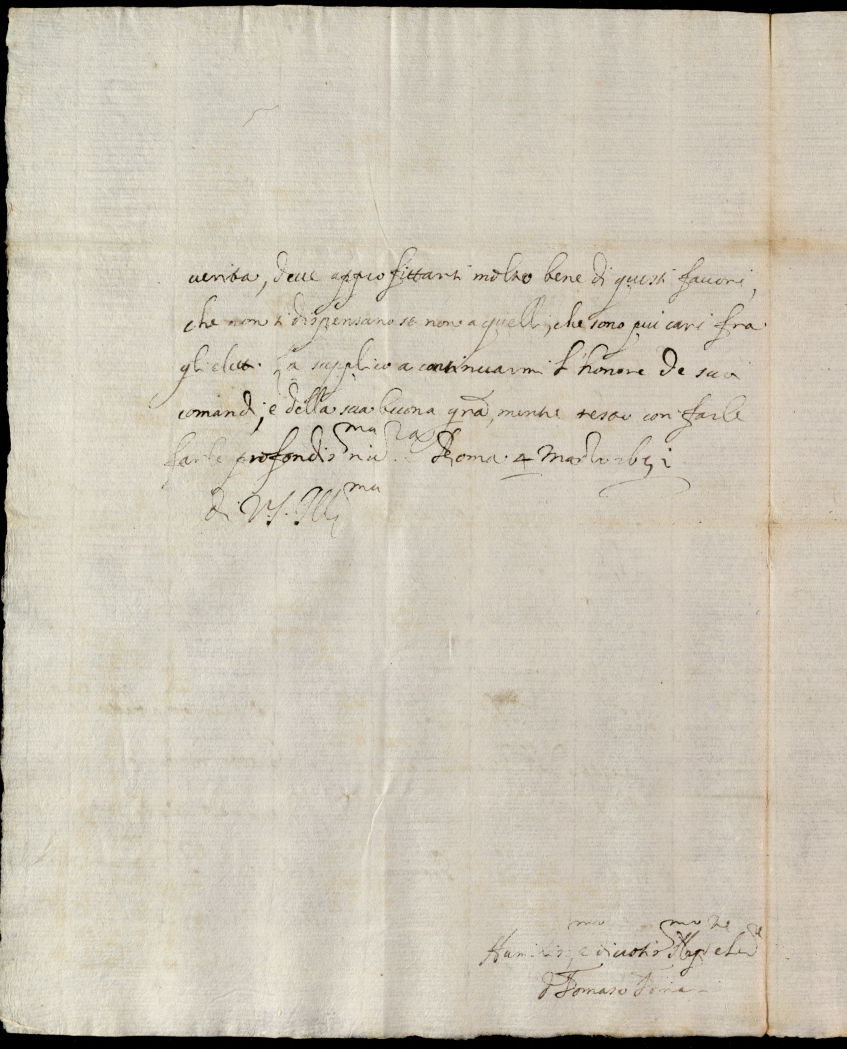 uerita, deue approfittarsi molto bene di questi fauori,
che non si dispensano se non a quelli, che sono piu cari fra
gli eletti. La supplico a continuarmi l'honore de suoi
comandi, e della sua buona gra, mentre resto con farle
farle profondis^ma riu^za. Roma 4 Marzo
di V.S. Ill^ma
Humilis^mo e diuotis^mo
d Tomaso